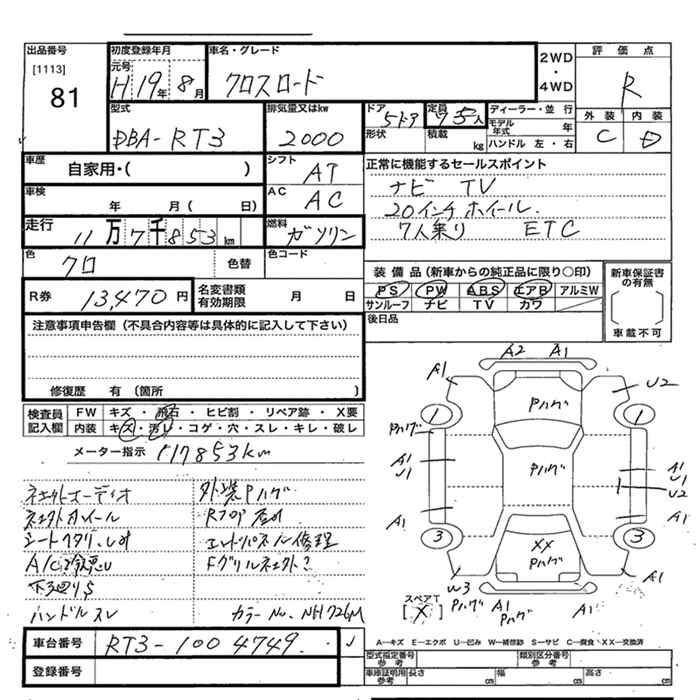 出品番号
[1113]
81
初度登録年月
元号
H 19年 8月
車名・グレード
クロスロード
2WD
・
4WD
評価点
R
外装 内装
C D
型式
DBA-RT3
排気量又はkw
2000
ドア
5ドア
形状
定員
75人
積載
kg
ディーラー・並行
モデル年式 年
ハンドル 左・右
車歴
自家用・( )
シフト
AT
車検
年 月( 日)
AC
AC
正常に機能するセールスポイント
ナビ TV
20インチホイール.
7人乗り ETC
走行
11万7千853km
燃料
ガソリン
色
クロ
色替
色コード
R券
13,470円
名変書類
有効期限
月 日
装備品(新車からの純正品に限り○印)
PS PW ABS エアB アルミW
サンルーフ ナビ TV カワ
後日品
新車保証書
の有無
車載不可
注意事項申告欄(不具合内容等は具体的に記入して下さい)
修復歴 有(箇所 )
検査員
記入欄
FW キズ・飛石・ヒビ割・リペア跡・X要
内装 キズ・汚レ・コゲ・穴・スレ・キレ・破レ
メーター指示 117853km
社外オーディオ
社外ホイール
A/C冷悪い
下回りS
ハンドルスレ
外装Pハゲ
カラーNo. NH726M
A2 A1
A1 U2
Pハゲ
1 1
Pハゲ
A1
U1
Pハゲ
A1
U1
U2
A1 A1
3 3
XX
Pハゲ
W3
Pハゲ
A1
Pハゲ
A1
スペアT
[X]
車台番号
RT3-1004749.
登録番号
A―キズ E―エクボ U―凹み W―補修跡 S―サビ C―腐食 XX―交換済
型式指定番号
参考
類別区分番号
参考
車庫証明用
参考
長さ cm 幅 cm 高さ cm